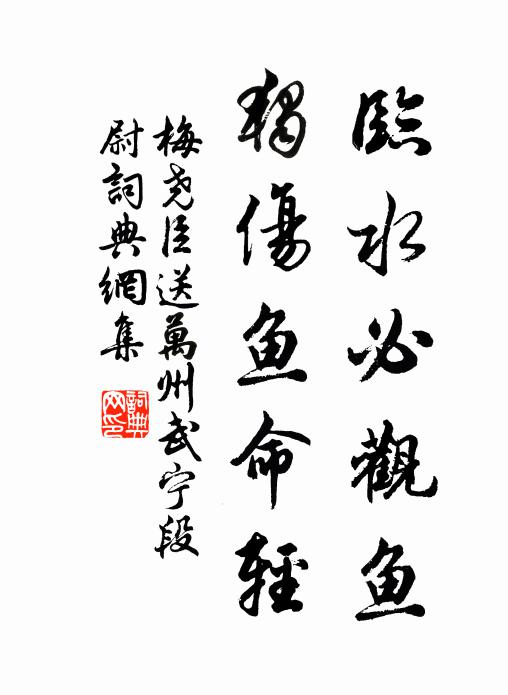 臨水必觀鱼
獨傷鱼命輕
梅尧臣送萬州武宁段
尉詞典網集
詞典
网印